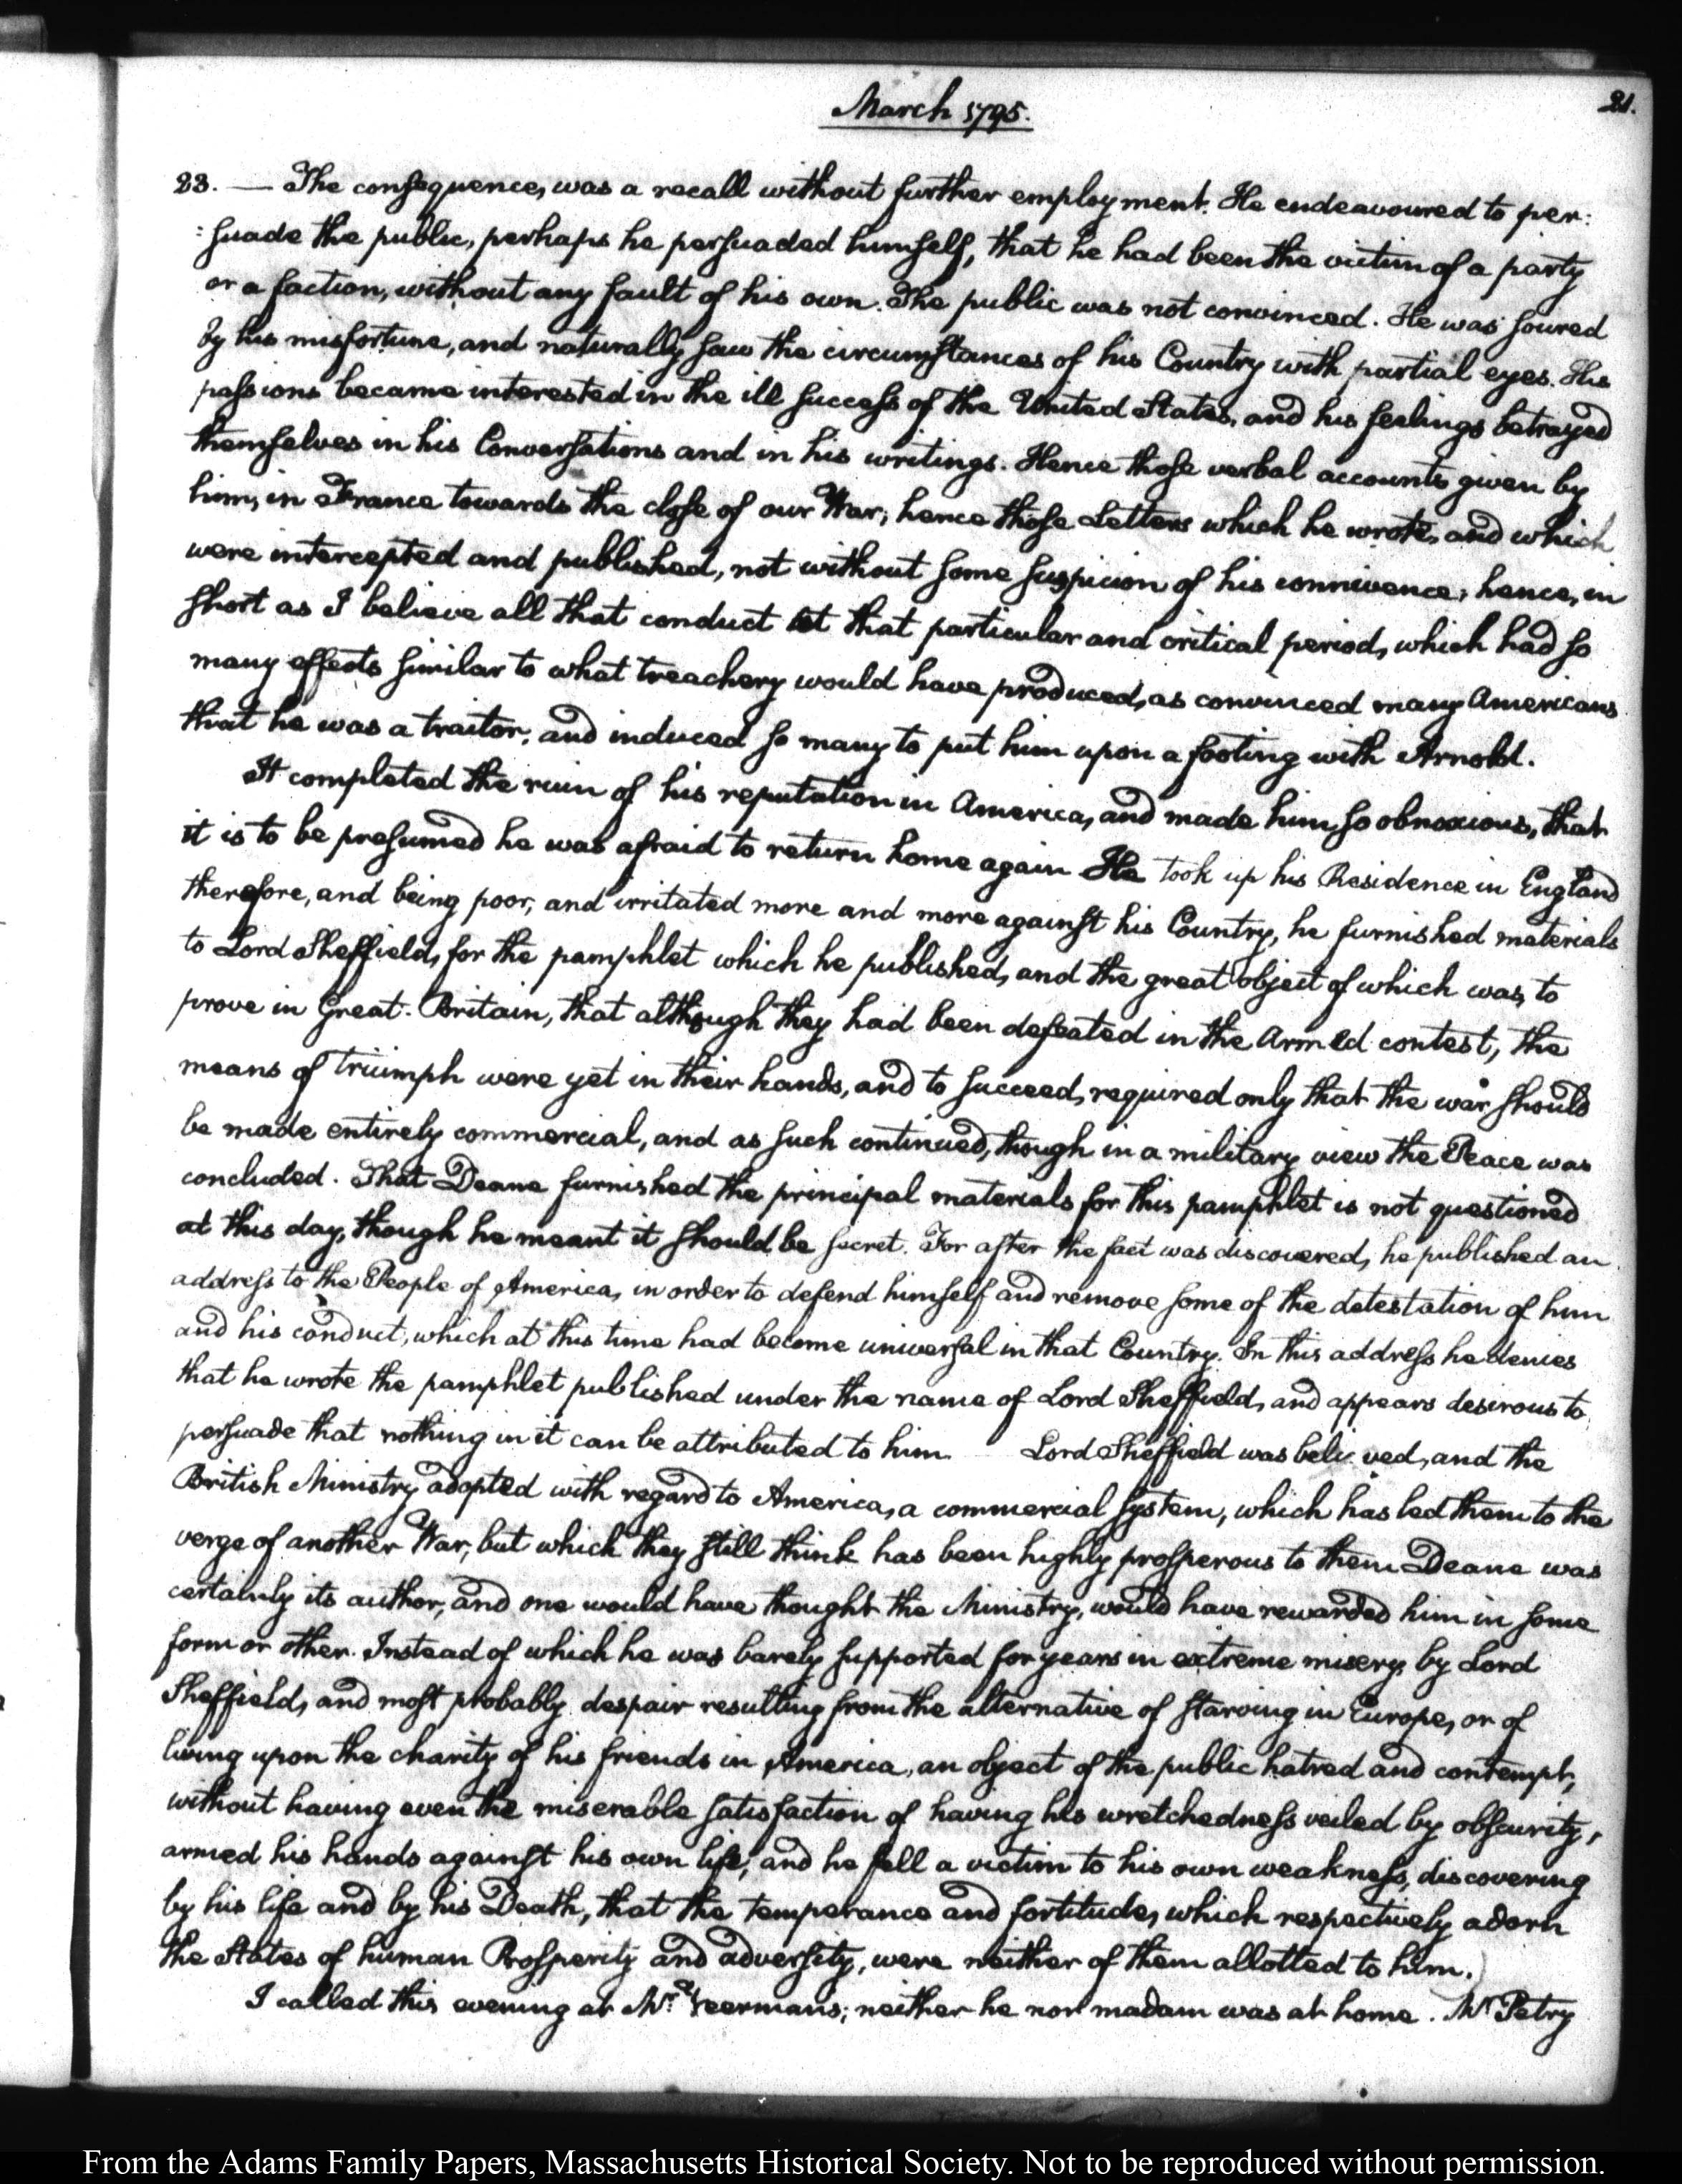 March 1795.
21.
23. — The consequence, was a recall without further employment. He endeavoured to per:
:suade the public, perhaps he persuaded himself, that he had been the victim of a party
or a faction, without any fault of his own. The public was not convinced. He was soured
by his misfortune, and naturally saw the circumstances of his Country with partial eyes. His
passions became interested in the ill success of the United States, and his feelings betrayed
themselves in his Conversations and in his writings. Hence those verbal accounts given by
him, in France towards the close of our War; hence those Letters which he wrote, and which
were intercepted and published, not without some suspicion of his connivence; hence, in
short as I believe all that conduct at that particular and critical period, which had so
many effects similar to what treachery would have produced, as convinced many Americans
that he was a traitor, and induced so many to put him upon a footing with Arnold.
It completed the ruin of his reputation in America, and made him so obnoxious, that
it is to be presumed he was afraid to return home again He took up his Residence in England
therefore, and being poor, and irritated more and more against his Country, he furnished materials
to Lord Sheffield, for the pamphlet which he published, and the great object of which was, to
prove in Great-Britain, that although they had been defeated in the Armed contest, the
means of triumph were yet in their hands, and to succeed, required only that the war should
be made entirely commercial, and as such continued, though in a military view the Peace was
concluded. That Deane furnished the principal materials for this pamphlet is not questioned
at this day, though he meant it should be secret. For after the fact was discovered, he published an
address to the People of America, in order to defend himself and remove some of the detestation of him
and his conduct, which at this time had become universal in that Country. In this address he denies
that he wrote the pamphlet published under the name of Lord Sheffield, and appears desirous to
persuade that nothing in it can be attributed to him. Lord Sheffield was believed, and the
British Ministry adopted with regard to America, a commercial system, which has led them to the
verge of another War, but which they still think has been highly prosperous to them Deane was
certainly its author, and one would have thought the Ministry, would have rewarded him in some
form or other. Instead of which he was barely supported for years in extreme misery by Lord
Sheffield, and most probably despair resulting from the alternative of starving in Europe, or of
living upon the charity of his friends in America, an object of the public hatred and contempt,
without having even the miserable satisfaction of having his wretchedness veiled by obscurity,
armed his hands against his own life, and he fell a victim to his own weakness, discovering
by his life and by his Death, that the temperance and fortitude, which respectively adorn
the States of human Prosperity and adversity, were neither of them allotted to him.
I called this evening at Mr. Veerman's; neither he nor madam was at home. Mr Petry
From the Adams Family Papers, Massachusetts Historical Society. Not to be reproduced without permission.